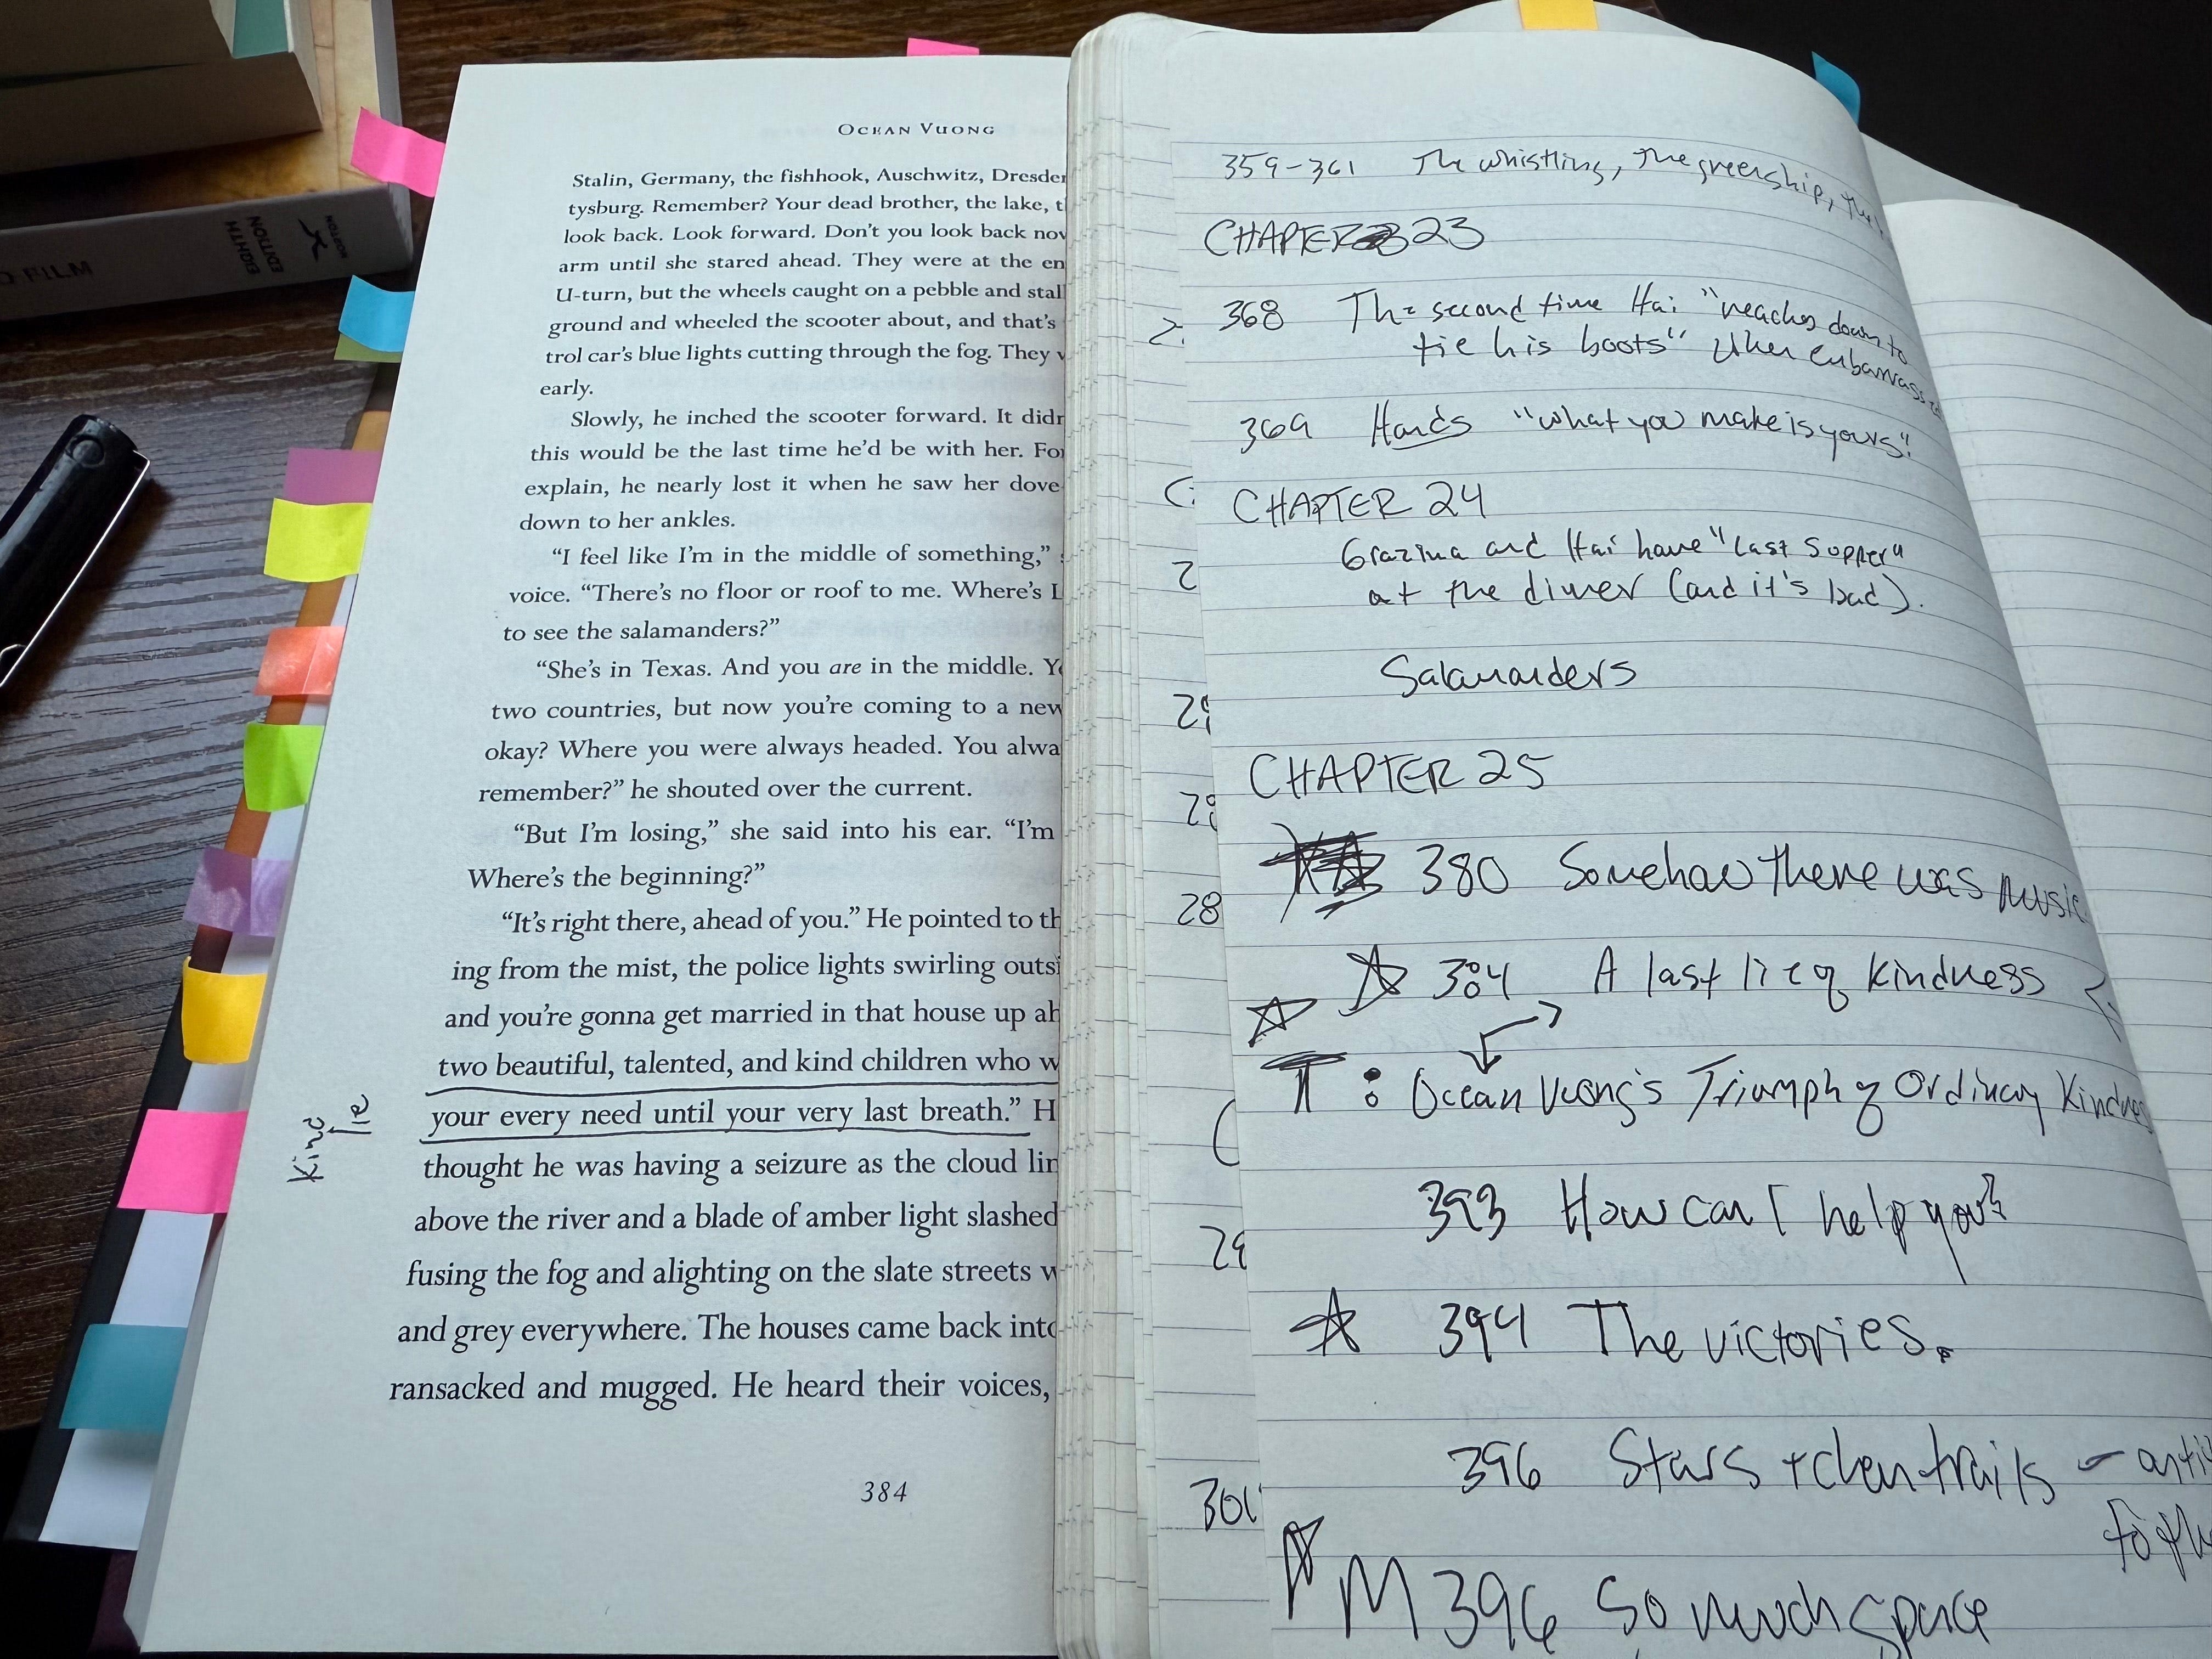 OCEAN VUONG
Stalin, Germany, the fishhook, Auschwitz, Dresden
tysburg. Remember? Your dead brother, the lake, t
look back. Look forward. Don't you look back now
arm until she stared ahead. They were at the en
U-turn, but the wheels caught on a pebble and stal
ground and wheeled the scooter about, and that's
trol car's blue lights cutting through the fog. They
early.
Slowly, he inched the scooter forward. It didn
this would be the last time he'd be with her. For
explain, he nearly lost it when he saw her dove
down to her ankles.
"I feel like I'm in the middle of something,"
voice. "There's no floor or roof to me. Where's L
to see the salamanders?"
"She's in Texas. And you are in the middle. Yo
two countries, but now you're coming to a new
okay? Where you were always headed. You alwa
remember?" he shouted over the current.
"But I'm losing," she said into his ear. "I'm
Where's the beginning?"
"It's right there, ahead of you." He pointed to th
ing from the mist, the police lights swirling outsi
and you're gonna get married in that house up ah
two beautiful, talented, and kind children who w
your every need until your very last breath." H
thought he was having a seizure as the cloud lin
above the river and a blade of amber light slashed
fusing the fog and alighting on the slate streets w
and grey everywhere. The houses came back into
ransacked and mugged. He heard their voices,
384
Kind
lie
359-361 The whistling, The greenship, the
CHAPTER 23
368 The second time Hai "reaches down to
tie his boots" when embarrassed
369 Hands "what you make is yours".
CHAPTER 24
Grazina and Hai have "Last Supper"
at the diner (and it's bad).
Salamanders
CHAPTER 25
380 Somehow there was music
384 A last lie of kindness
T: Ocean Vuong's Triumph of Ordinary Kindness
393 How can I help you?
394 The victories.
396 Stars + chemtrails - anti
to the
M 396 So much space
2.
C:
2
29
28
28
(
29
301
NORTON
EIGHTH
EDITION
FILM